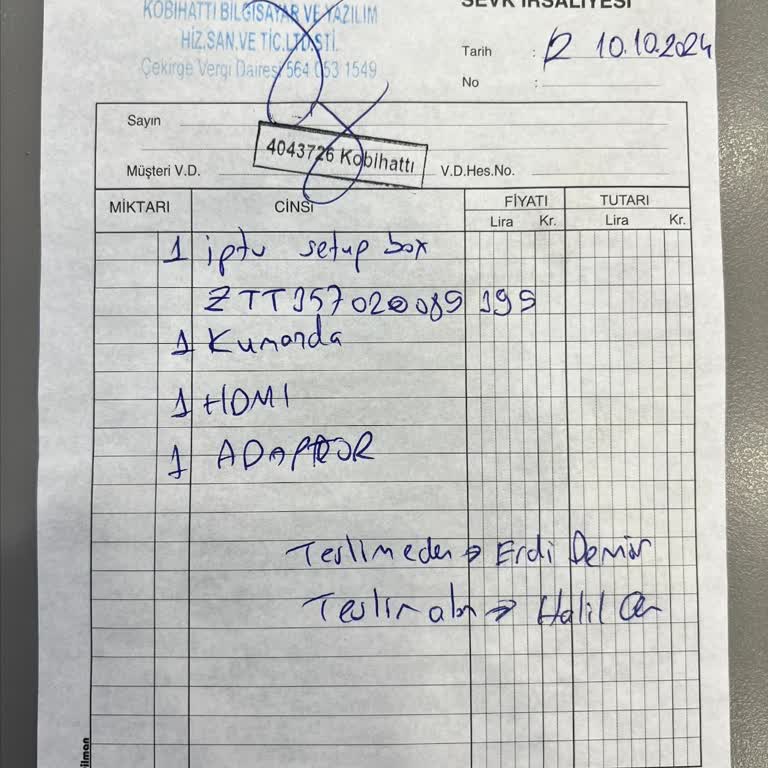 KOBIHATTI BİLGİSAYAR VE YAZILIM
SEVK İRSALİYESİ
HİZ.SAN.VE TİC.LTD.ŞTİ.
Çekirge Vergi Dairesi 564 053 1549
Tarih : 10.10.2024
No :
Sayın
4043726 Kobihattı
Müşteri V.D.
V.D.Hes.No.
MİKTARI CİNSİ FİYATI TUTARI
Lira Kr. Lira Kr.
1 iptv setup box
ZTT357020089 199
1 Kumanda
1 HDMI
1 ADAPTÖR
Teslim eden → Erdi Demir
Teslim alan → Halil